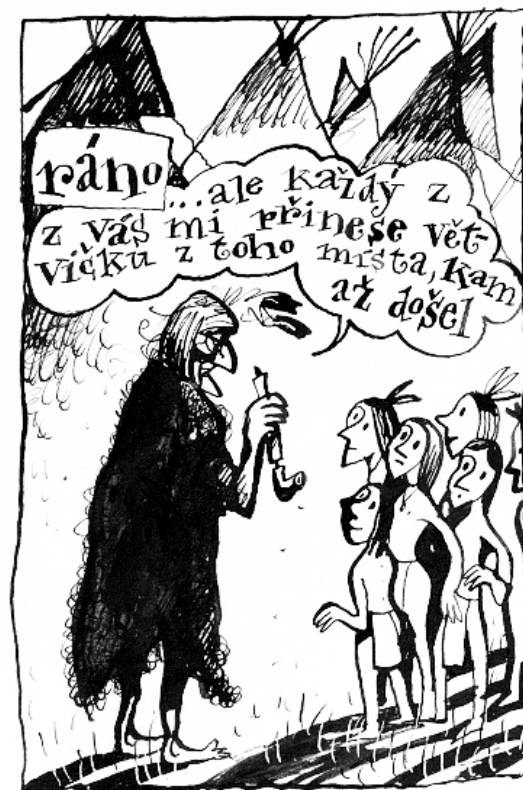 ráno
...ale každý z
z vás mi přinese vět-
vičku z toho místa, kam
až došel